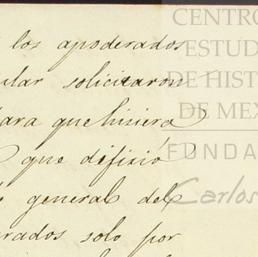 los apoderados
ular solicitaron
para que hiciera
que difirió
general del
rados solo por
CENTRO
ESTUD
DE HIST
DE MEX
FUNDA
Carlos